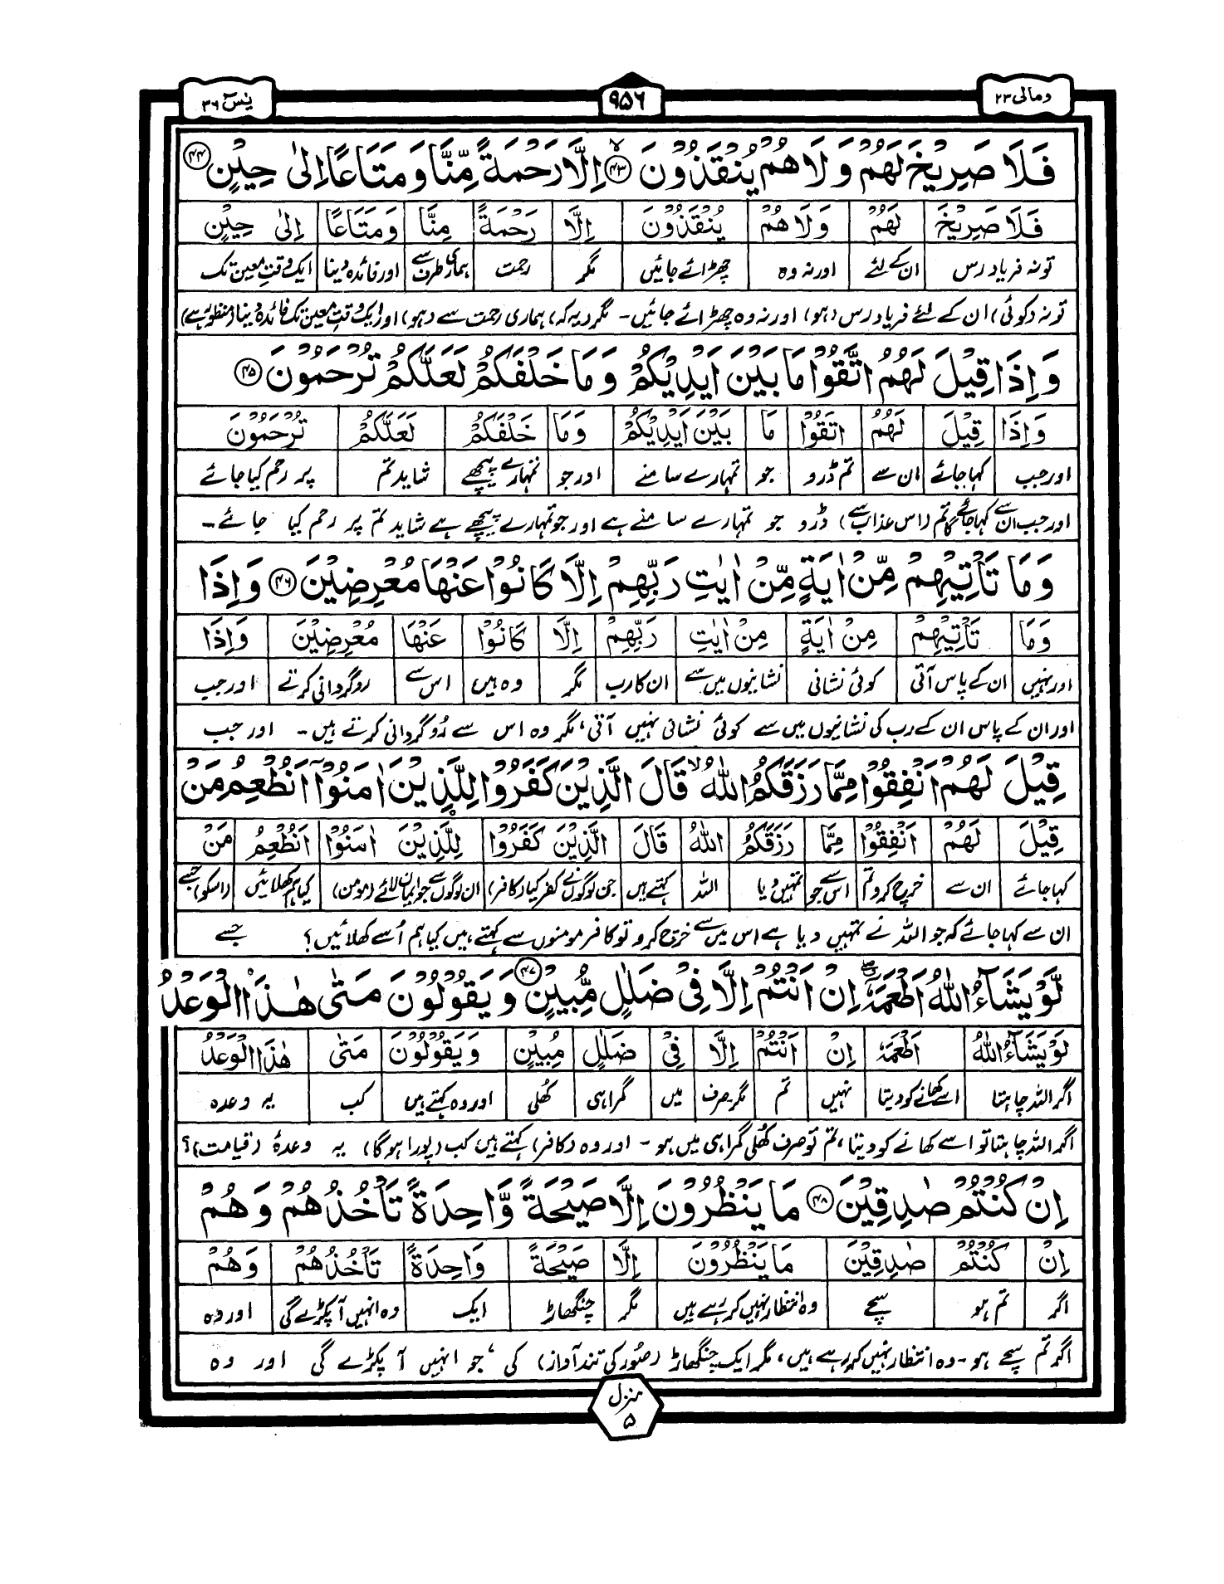 ومالی ۲۳
۹۵۶
یٰسٓ ۳۶
فَلَا صَرِيْخَ لَهُمْ وَلَا هُمْ يُنْقَذُوْنَ ۴۳ اِلَّا رَحْمَةً مِّنَّا وَمَتَاعًا اِلٰى حِيْنٍ ۴۴
فَلَا صَرِيْخَ لَهُمْ وَلَا هُمْ يُنْقَذُوْنَ اِلَّا رَحْمَةً مِنَّا وَمَتَاعًا اِلٰى حِيْنٍ
تو نہ فریاد رس ان کے لئے اور نہ وہ چھڑائے جائیں مگر رحمت ہماری طرف سے اور فائدہ دینا ایک وقتِ معین تک
تو نہ (کوئی) ان کے لئے فریاد رس (ہو) اور نہ وہ چھڑائے جائیں۔ مگر (یہ کہ) ہماری رحمت سے (ہو) اور ایک وقتِ معین تک فائدہ دینا (منظور ہے)
وَاِذَا قِيْلَ لَهُمُ اتَّقُوْا مَا بَيْنَ اَيْدِيْكُمْ وَمَا خَلْفَكُمْ لَعَلَّكُمْ تُرْحَمُوْنَ ۴۵
وَاِذَا قِيْلَ لَهُمُ اتَّقُوْا مَا بَيْنَ اَيْدِيْكُمْ وَمَا خَلْفَكُمْ لَعَلَّكُمْ تُرْحَمُوْنَ
اور جب کہا جائے ان سے تم ڈرو جو تمہارے سامنے اور جو تمہارے پیچھے شاید تم پر رحم کیا جائے
اور جب ان سے کہا جائے کہ تم (اس عذاب سے) ڈرو جو تمہارے سامنے ہے اور جو تمہارے پیچھے ہے شاید تم پر رحم کیا جائے۔
وَمَا تَأْتِيْهِمْ مِّنْ اٰيَةٍ مِّنْ اٰيٰتِ رَبِّهِمْ اِلَّا كَانُوْا عَنْهَا مُعْرِضِيْنَ ۴۶ وَاِذَا
وَمَا تَأْتِيْهِمْ مِنْ اٰيَةٍ مِنْ اٰيٰتِ رَبِّهِمْ اِلَّا كَانُوْا عَنْهَا مُعْرِضِيْنَ وَاِذَا
اور نہیں ان کے پاس آتی کوئی نشانی نشانیوں میں سے ان کا رب مگر وہ ہیں اس سے روگردانی کرتے اور جب
اور ان کے پاس ان کے رب کی نشانیوں میں سے کوئی نشانی نہیں آتی، مگر وہ اس سے رُوگردانی کرتے ہیں۔ اور جب
قِيْلَ لَهُمْ اَنْفِقُوْا مِمَّا رَزَقَكُمُ اللّٰهُ ۙ قَالَ الَّذِيْنَ كَفَرُوْا لِلَّذِيْنَ اٰمَنُوْٓا اَنُطْعِمُ مَنْ
قِيْلَ لَهُمْ اَنْفِقُوْا مِمَّا رَزَقَكُمُ اللّٰهُ قَالَ الَّذِيْنَ كَفَرُوْا لِلَّذِيْنَ اٰمَنُوْا اَنُطْعِمُ مَنْ
کہا جائے ان سے خرچ کرو تم اس سے جو تمہیں دیا اللہ کہتے ہیں جن لوگوں نے کفر کیا (کافر) ان لوگوں سے جو ایمان لائے (مومن) کیا ہم کھلائیں (اسکو) جسے
ان سے کہا جائے کہ جو اللہ نے تمہیں دیا ہے اس میں سے خرچ کرو تو کافر مومنوں سے کہتے ہیں کیا ہم اُسے کھلائیں؟ جسے
لَّوْ يَشَآءُ اللّٰهُ اَطْعَمَهٗٓ ۖ اِنْ اَنْتُمْ اِلَّا فِيْ ضَلٰلٍ مُّبِيْنٍ ۴۷ وَيَقُوْلُوْنَ مَتٰى هٰذَا الْوَعْدُ
لَوْ يَشَآءُ اللّٰهُ اَطْعَمَهٗ اِنْ اَنْتُمْ اِلَّا فِيْ ضَلٰلٍ مُبِيْنٍ وَيَقُوْلُوْنَ مَتٰى هٰذَا الْوَعْدُ
اگر اللہ چاہتا اسے کھانے کو دیتا نہیں تم مگر۔صرف میں گمراہی کھلی اور وہ کہتے ہیں کب یہ وعدہ
اگر اللہ چاہتا تو اسے کھانے کو دیتا، تم تو صرف کھلی گمراہی میں ہو۔ اور وہ (کافر) کہتے ہیں کب (پورا ہو گا) یہ وعدۂ (قیامت)؟
اِنْ كُنْتُمْ صٰدِقِيْنَ ۴۸ مَا يَنْظُرُوْنَ اِلَّا صَيْحَةً وَّاحِدَةً تَأْخُذُهُمْ وَهُمْ
اِنْ كُنْتُمْ صٰدِقِيْنَ مَا يَنْظُرُوْنَ اِلَّا صَيْحَةً وَاحِدَةً تَأْخُذُهُمْ وَهُمْ
اگر تم ہو سچے وہ انتظار نہیں کر رہے ہیں مگر چنگھاڑ ایک وہ انہیں آ پکڑے گی اور وہ
اگر تم سچے ہو۔ وہ انتظار نہیں کر رہے ہیں، مگر ایک چنگھاڑ (صور کی تند آواز) کی، جو انہیں آ پکڑے گی اور وہ
منزل
۵